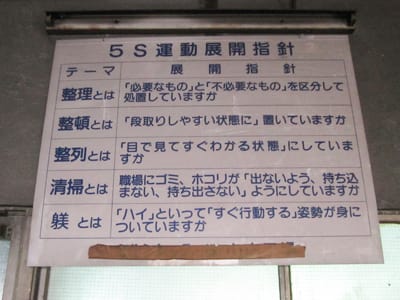 5S運動展開指針
テーマ 展開指針
整理とは 「必要なもの」と「不必要なもの」を区分して
処置していますか
整頓とは 「段取りしやすい状態に」置いていますか
整列とは 「目で見てすぐわかる状態」にしていま
すか
清掃とは 職場にゴミ、ホコリが「出ないよう、持ち込
まない、持ち出さない」ようにしていますか
躾とは 「ハイ」といって「すぐ行動する」姿勢が身に
ついていますか